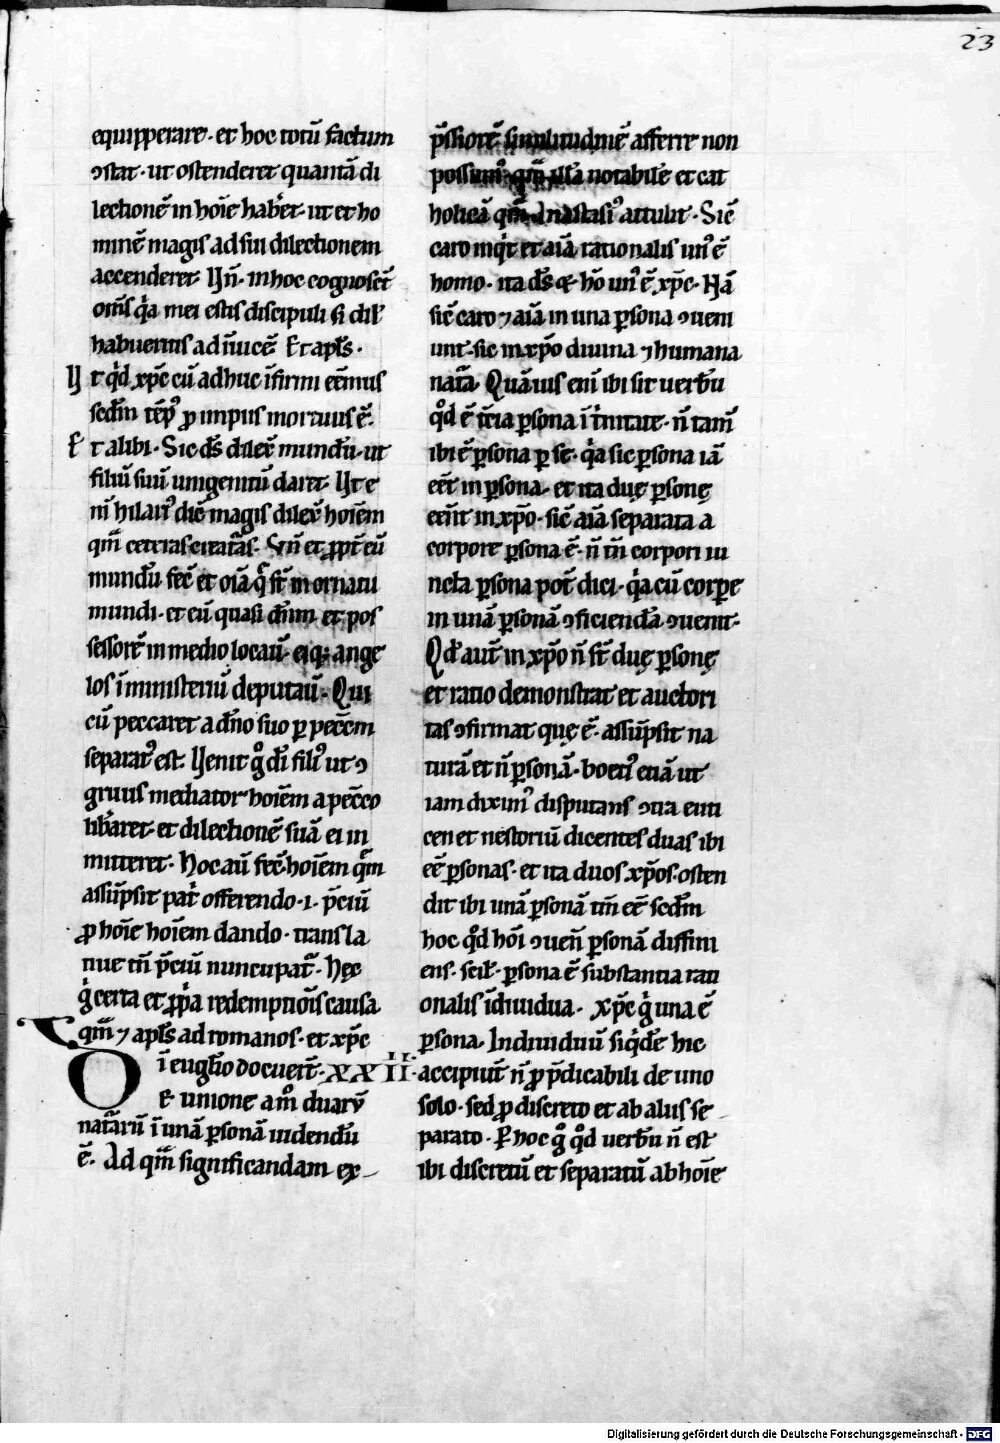 23
equipperare· et hoc totū factum
ↄstat· ut ostenderet quantā di
lectionē in hoīe habet· ut et ho
minē magis ad sui dilectionem
accenderet Un̄· in hoc cognoscēt
om̄s qͥa mei estis discipuli si dil̄
habueritis ad īuicē Et apl̄s·
Ut qͥd xp̄c cū adhuc īfirmi eēmus
sedm̄ tēpꝰ ꝓ impiis mortuus ē·
Et alibi· Sic ds̄ dilex̄ mundū· ut
filiū suū unigenitū daret· Ut e
ni hilariꝰ dic̄ magis dilex̄ hoīem
qm̄ ceteras creat̄as· Un̄ et ꝓpt̄ eū
mundū fec̄ et oīa q̄ st̄ in ornatu
mundi· et eū quasi dn̄m et pos
sessorē in medio locauˉ· eiqꝫ ange
los ī ministeriū deputauˉ· Qui
cū peccaret a dn̄o suo ꝑ pecc̄m
separatꝰ est· Uenit gͦ dī filiꝰ ut ↄ
gruus mediator hoīem a pecc̄o
lib̄aret· et dilectionē suā ei in
mitteret· Hoc aū fec̄ hoīem q̄m
assūpsit patͥ offerendo· i· p̄ciū
ꝓ hoīe hoīem dando· transla
tiue tn̄ p̄ciū nuncupat̄· Hęc
gͥ certa et ꝓp̄a redemptiōis causa
qm̄ ⁊ apl̄s ad romanos· et xp̄c
ī euglīo docuert̄· XXIII·
DE unione am̄ duarū
nat̄arū ī unā ꝑsonā uidendū
ē· Ad qm̄ significandam ex
p̄ssiorē similitudinē afferre non
possumꝰ· qm̄ illā notabilē et cat
holicā qm̄ Anastasiꝰ attulit· Sic̄
caro inqͥt et aīa rationalis unꝰ ē
homo· ita ds̄ & hō unꝰ ē xp̄c· Nā
sic̄ caro ⁊ aīa in una ꝑsona ↄueni
unt· sic in xp̄o diuina ⁊ humana
nat̄a· Quāuis eni ibi sit uerbū
qͦd ē t̄cia ꝑsona ī tͥnitate· n̄ tam̄
ibi ē ꝑsona ꝑ se· qͥa sic ꝑsona iā
eēt in ꝑsona· et ita duę ꝑsonę
eēnt in xp̄o· sic̄ aīa separata a
corpore ꝑsona ē· n̄ tn̄ corpori iu
ncta ꝑsona pot̄ dici· qͥa cū corꝑe
in unā ꝑsonā ↄficiendā ↄuenit·
Qd̄ aut̄ in xp̄o n̄ st̄ duę ꝑsonę
et ratio demonstrat et auctori
tas ↄfirmat quę ē· assūpsit na
turā et n̄ ꝑsonā· boetiꝰ etiā ut
iam diximꝰ disputans ↄtra euti
cen et nestoriū dicentes duas ibi
eē ꝑsonas· et ita duos xp̄os· osten
dit ibi unā ꝑsonā tm̄ eē sedm̄
hoc qͦd hōi ↄuen̄ ꝑsonā diffini
ens· scil̄· ꝑsona ē substantia rati
onalis īdiuidua· xp̄c gͥ una ē
ꝑsona· Indiuiduū siqͥdē hic
accipiut̄ n̄ ꝓ p̄dicabili de uno
solo· sed ꝓ discreto et ab aliis se
parato· Ꝑ hoc gͦ qͦd uerbū n̄ est
ibi discretū et separatū ab hoīe
Digitalisierung gefördert durch die Deutsche Forschungsgemeinschaft - DFG